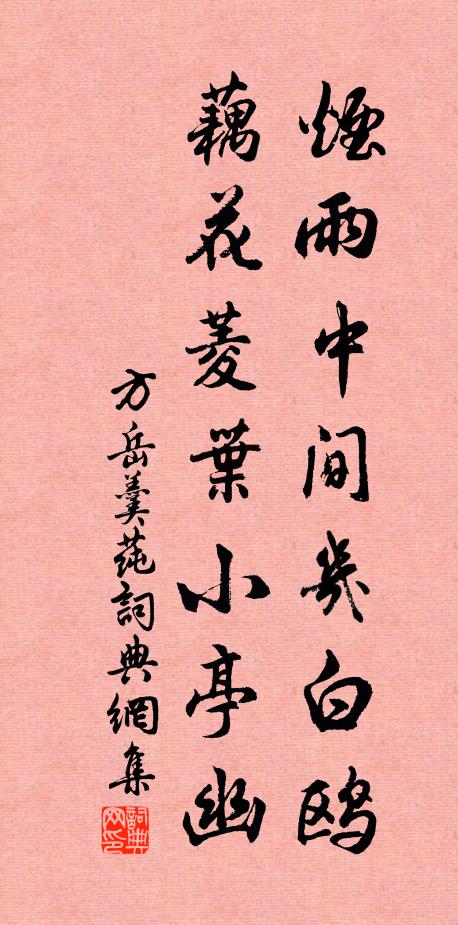 煙雨中間幾白鴎
藕花菱葉小亭幽
方岳羹蒓詞典網集
詞典网印